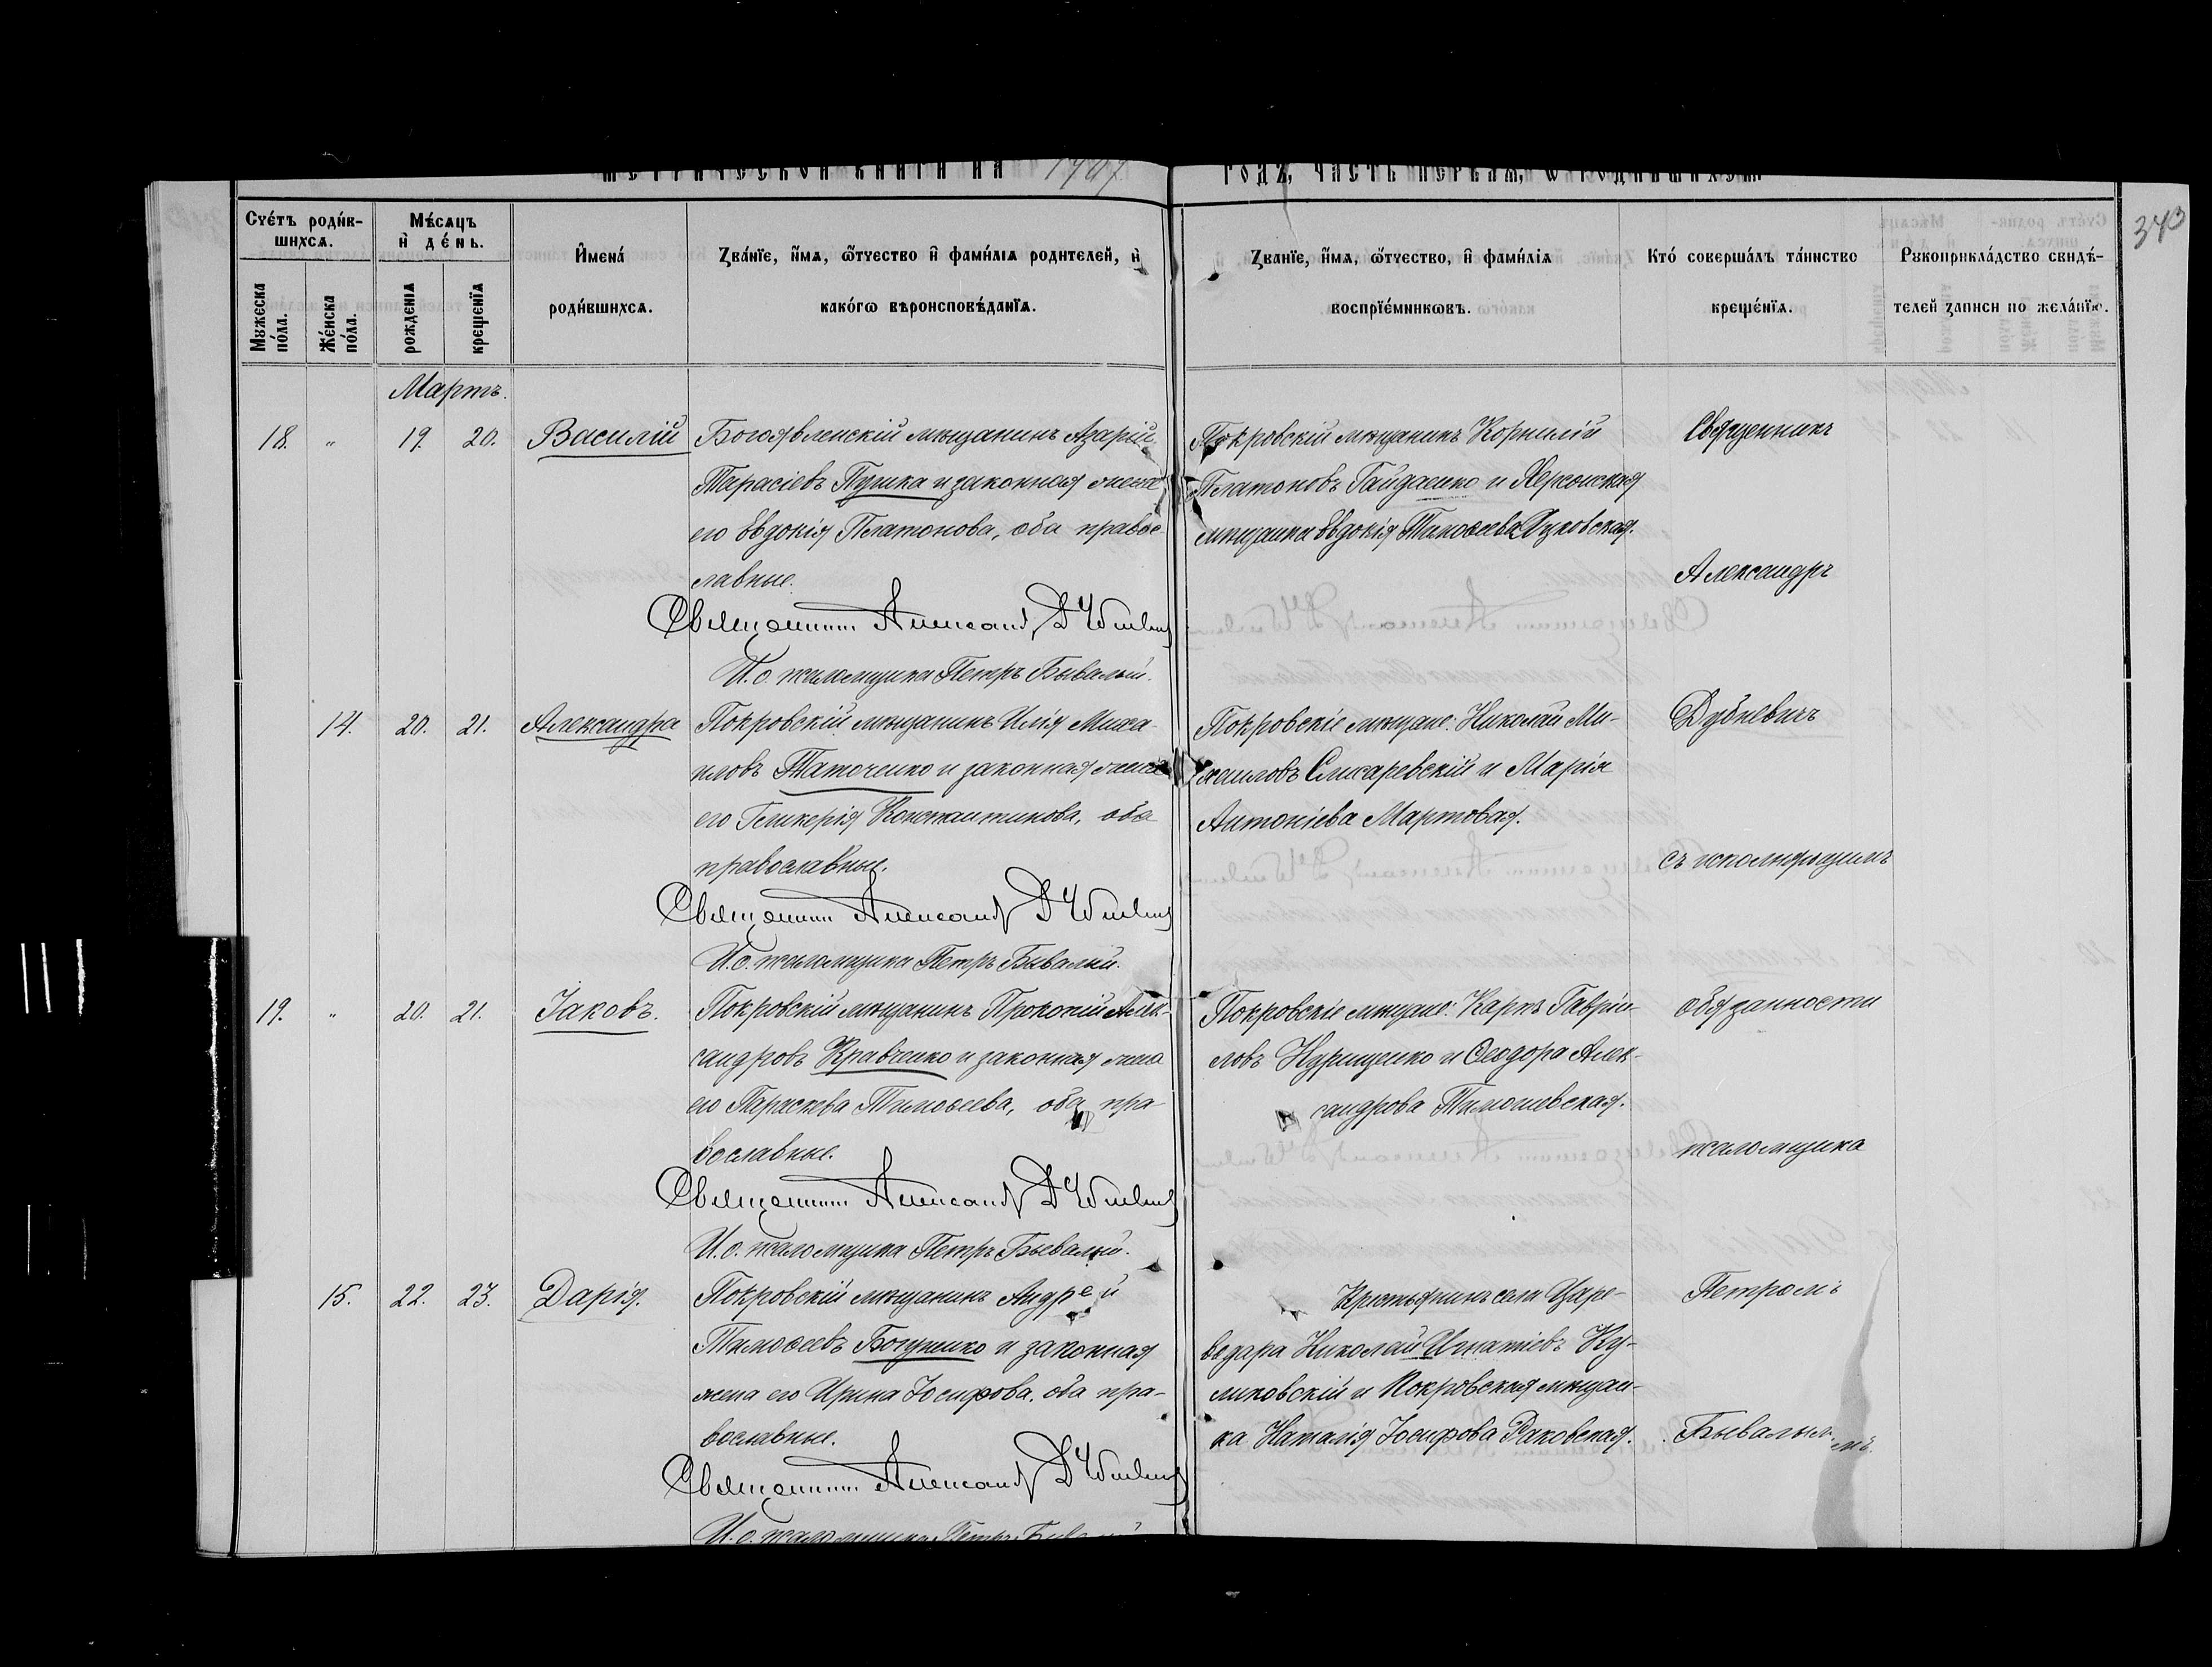 МЕТРИЧЕСКОЙ КНИГИ НА
ГОДЪ, ЧАСТЬ ПЕРВАЯ, Ѡ РОДИВШИХСЯ
343
Счéтъ роди́в-
шихсѧ.
Мꙋжеска по́ла.
Же́нска по́ла.
Мѣ́сѧцъ
и҆ де́нь.
рожденїѧ
крещенїѧ
И҆мена́
роди́вшихсѧ.
Зва́нїе, и҆́мѧ, ѻ҆́тчество и҆ фами́лїѧ родителей, и҆
како́гѡ вѣроисповѣ́данїѧ.
Зва́нїе, и҆́мѧ, ѻ҆́тчество, и҆ фами́лїѧ
воспрїе́мникѡвъ.
Кто́ соверша́лъ та́инство
креще́нїѧ.
Рꙋкоприкла́дство свидѣ́-
телей записи по жела́нїю.
Мартъ.
18. " 19. 20. Василій
Богоявленскій мѣщанинъ Азарій
Тарасіевъ Пушка и законная жена
его Евдокія Платонова, оба правос-
лавные.
Священникъ Александръ Дубневичъ
И. о. псаломщика Петръ Бывалый.
Покровскій мѣщанинъ Корнилій
Платоновъ Гайдаенко и Херсонская
мѣщанка Евдокія Тимофеева
Священникъ
Александръ
14. 20. 21. Александра
Покровскій мѣщанинъ Илія Миха-
иловъ Таточенко и законная жена
его Гликерія Константинова, оба
православные.
Священникъ Александръ Дубневичъ
И. о. псаломщика Петръ Бывалый.
Покровскіе мѣщане: Николай Ми-
хаиловъ Слюсаревскій и Марія
Антоніева Мартовая.
Дубневичъ
съ исполняющимъ
19. " 20. 21. Іаковъ.
Покровскій мѣщанинъ Прокопій Алек-
сандровъ Кравченко и законная жена
его Параскева Тимоѳеева, оба пра-
вославные.
Священникъ Александръ Дубневичъ
И. о. псаломщика Петръ Бывалый.
Покровскіе мѣщане: Карпъ Гавріи-
ловъ Нурищенко и Ѳеодора Алек-
сандрова Тимошевская.
обязанности
псаломщика
15. 22. 23. Дарія.
Покровскій мѣщанинъ Андрей
Тимоѳеевъ Богушко и законная
жена его Ирина Іосифова, оба пра-
вославные.
Священникъ Александръ Дубневичъ
И. о. псаломщика Петръ Бывалый
Крестьянинъ села Царе-
ведара Николай Игнатіевъ Ку-
ликовскій и Покровская мѣщан-
ка Наталія Іосифова Раковская.
Петромъ
Бывалымъ